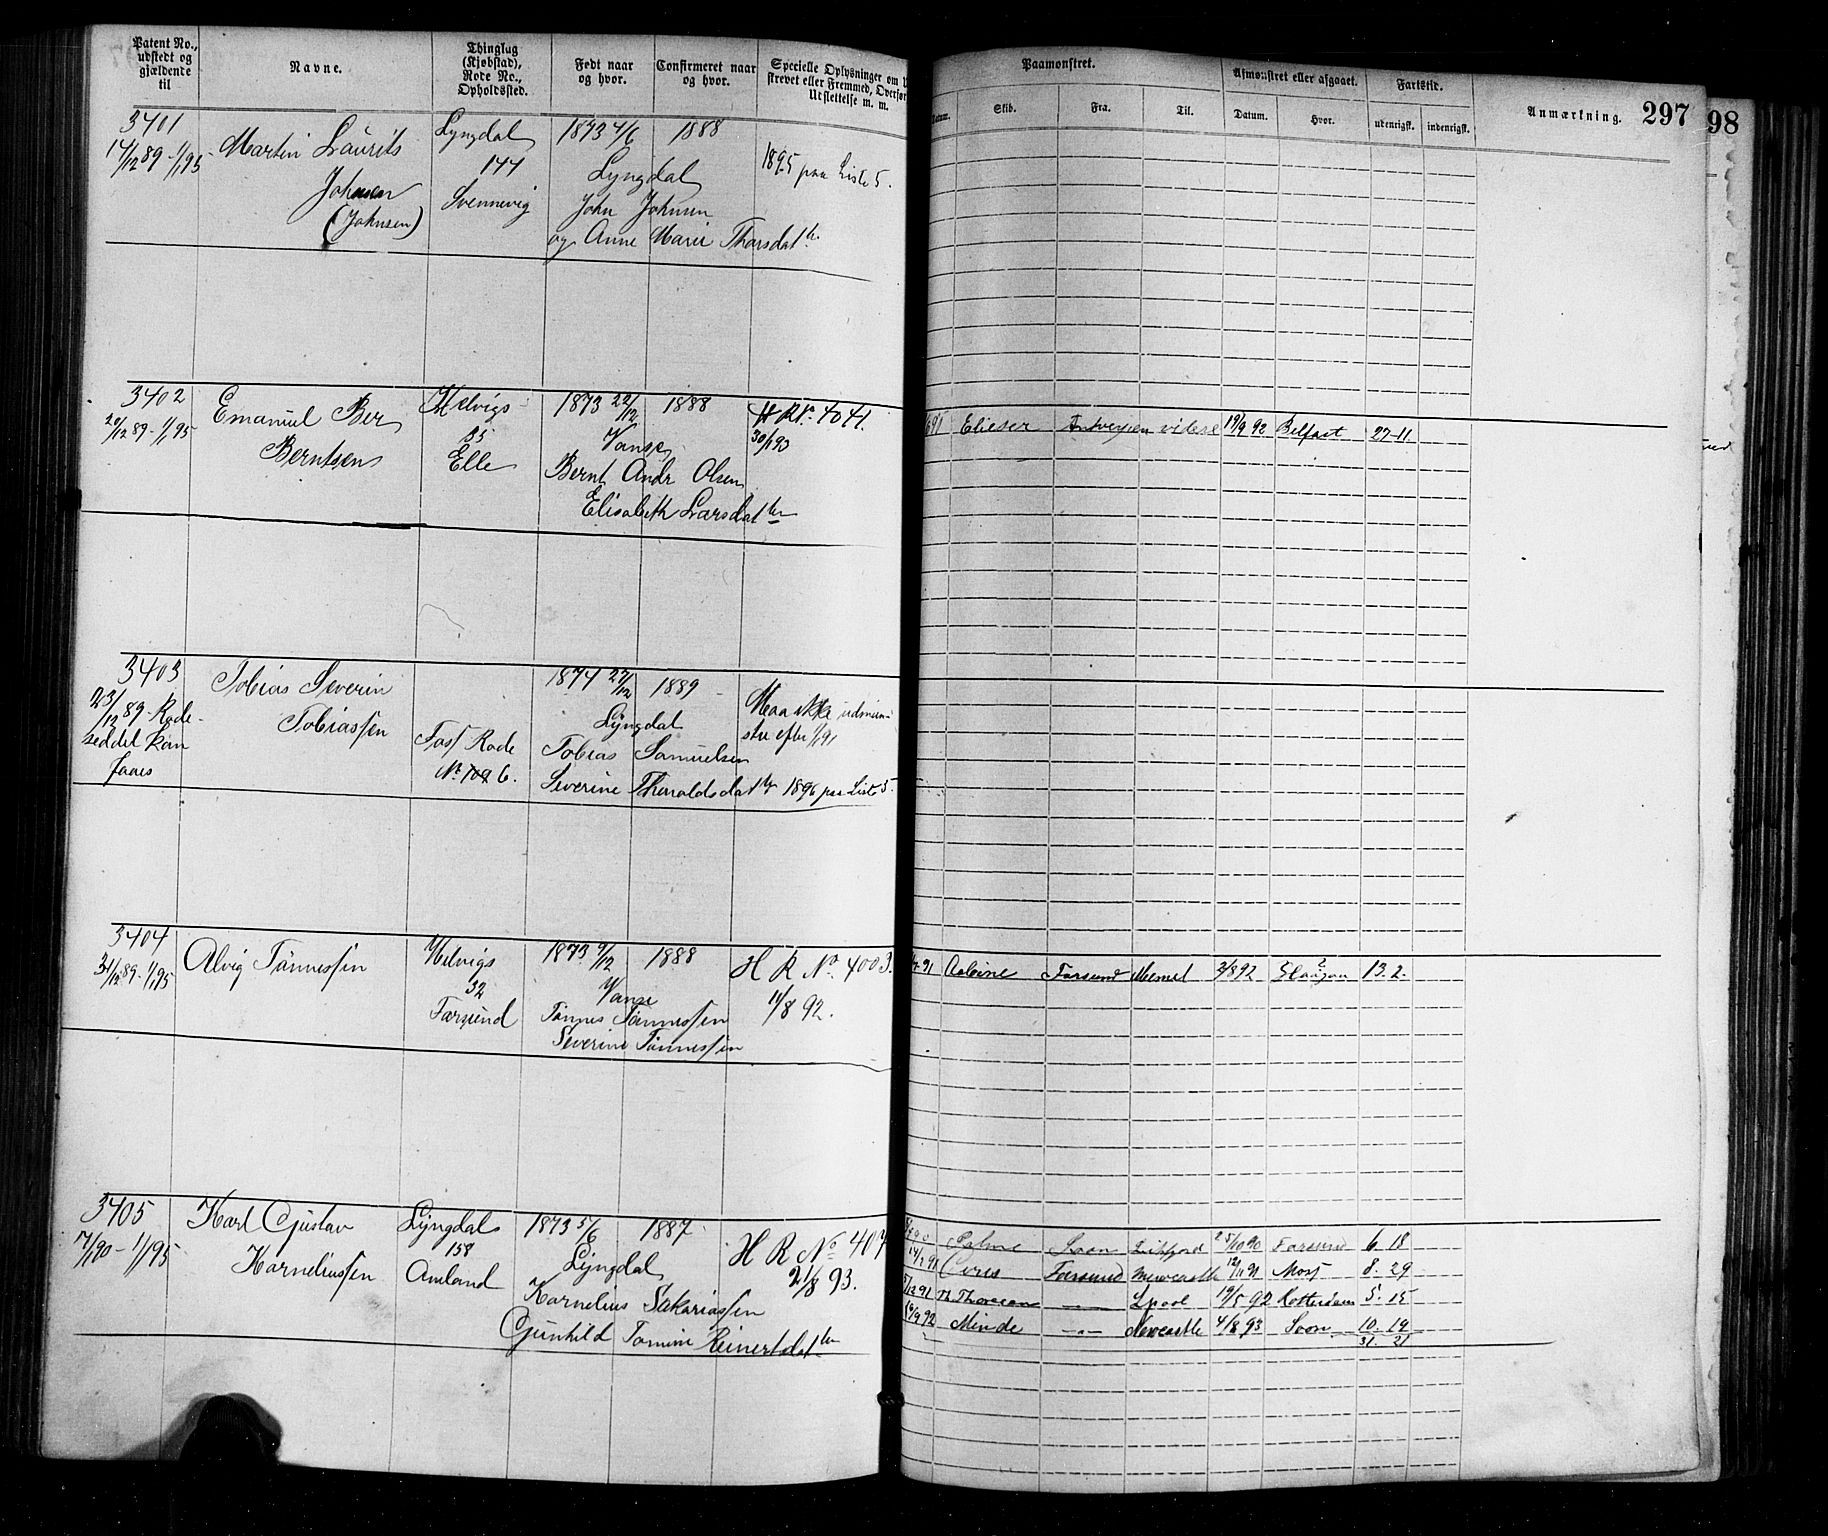 Patent No., udstedt og gjældende til
Navne.
Thinglag (Kjøbstad), Rode No., Opholdssted.
Født naar og hvor.
Confirmeret naar og hvor.
Specielle Oplysninger om
strevet eller Fremmed, Overfør
Udslettelse m. m.
Paamønstret.
Datum.
Skib.
Fra.
Til.
Afmønstret eller afgaaet.
Datum.
Hvor.
Fartstid.
udenrigsk.
indenrigsk.
Anmærkning.
297
98
3401
14/12 89 - 1/1 95
Martin Laurits
Johnsen
(Johnsen)
Lyngdal
144
Svennevig
1873 4/6
1888
Lyngdal
John Johnsen
og Anne Marie Tharsdattr.
1895 paa Liste 5.
3402
20/12 89 - 1/1 95
Emanuel Ber
Berntsen
Helvigs
35
Elle
1873 22/12
1888
Vanse
Bernt Andr Olsen
Elisabeth Larsdatter
H R Nr. 4041.
30/1 93
Elieser
Antwerpen
vilese
19/9 92
Belfast
27-11
3403
23/12 89 - Rode-
seddel kan
faaes
Tobias Severin
Tobiassen
Fars Rode
No. 109 6.
1874 27/12
1889
Lyngdal
Tobias Samuelsen
Severine Tharaldsdattr
Maa ikke udmøn-
stre efter 1/1 91
1896 paa Liste 5
3404
31/12 89 - 1/1 95
Alvig Tønnessen
Helvigs
32
Farsund
1873 9/12
1888
Vanse
Tønnes Tønnessen
Severine Tønnessen
H R No. 4003.
11/8 92.
91
Farsund
Memel
2/8 92
13. 2.
3405
7/1 90 - 1/1 95
Karl Gustav
Korneliussen
Lyngdal
158
Amland
1873 5/6
1887
Lyngdal
Kornelius Sakariassen
Gunhild Tomine Reinertsdatter
H R No 407
21/8 93.
90
Soon
25/10 90
Farsund
6. 18
14/2 91
Ceres
Farsund
Newcastle
12/11 91
Moss
8. 29
5/12 91
Th. Thoresen
—
Lpool
19/5 92
Rotterdam
5. 15
16/9 92
Minde
—"—
Newcastle
4/8 93
Soon
10. 19
31. 21